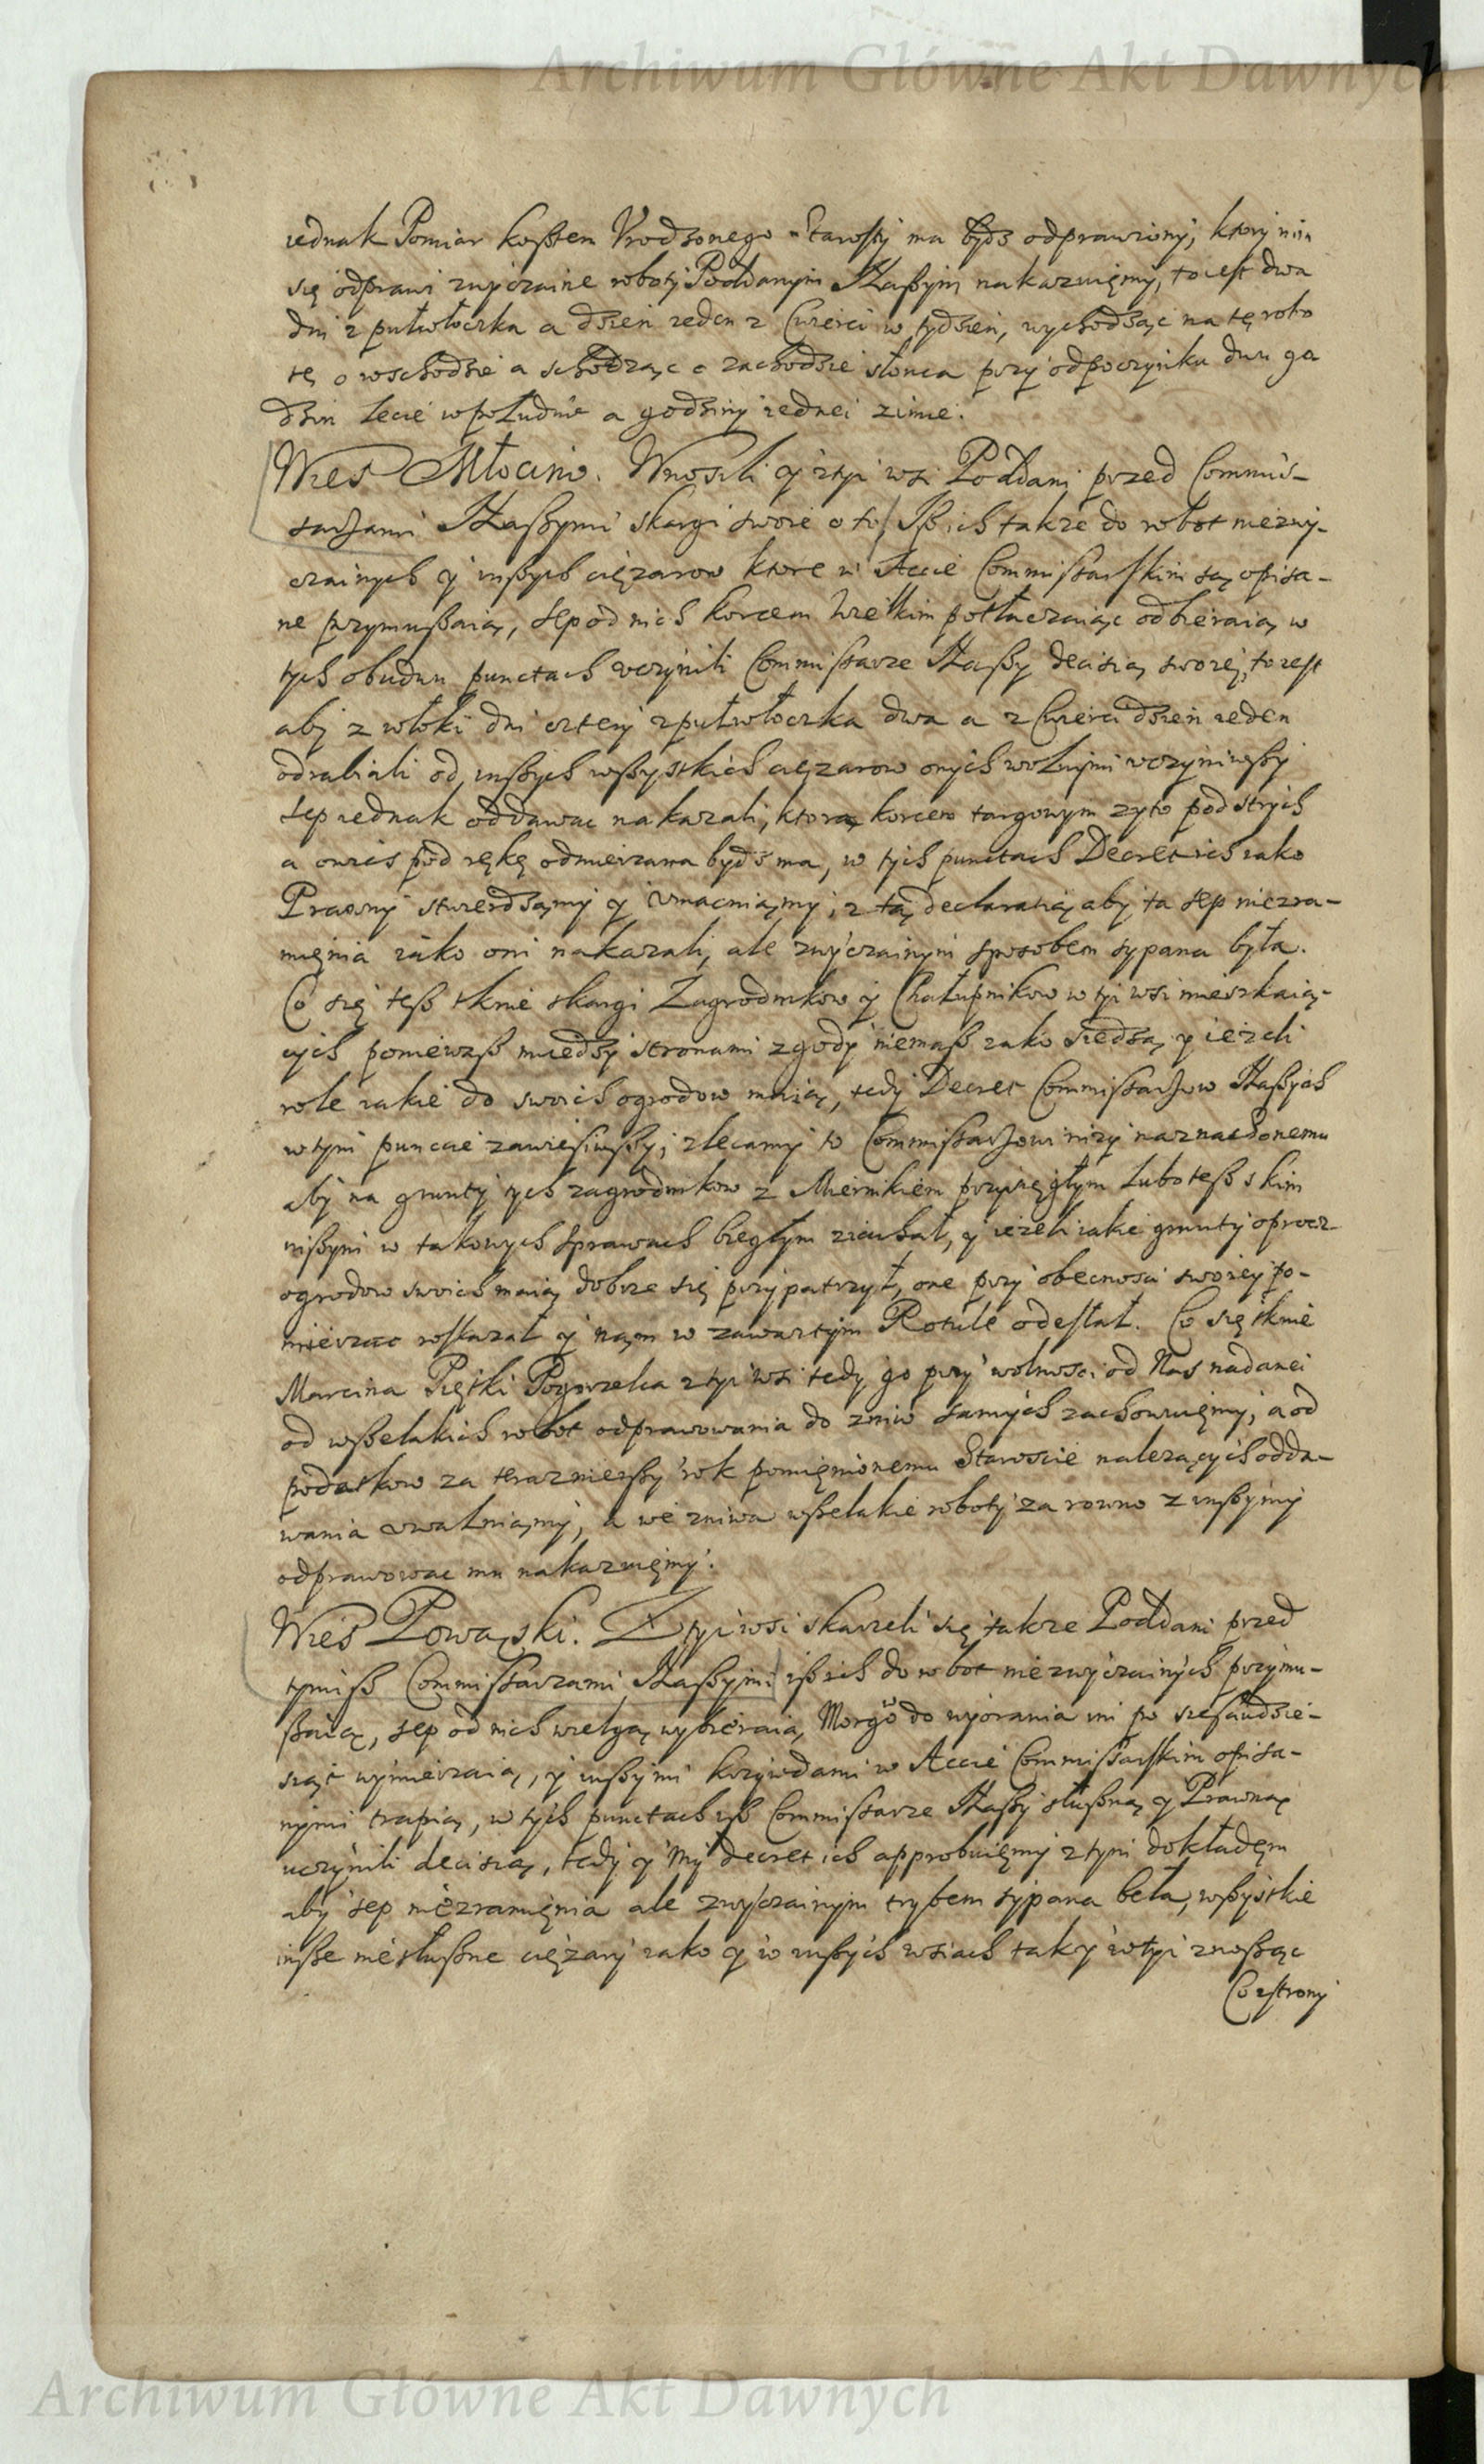 Archiwum Główne Akt Dawnych
iednak Pomiar kosztem Vrodzonego Starosty ma bydz odprawiony, ktory nim
się odprawi zwyczaine roboty Poddanym Naszym nakazuięmy, to iest dwa
dni z pułwłoczka a dzien ieden z Cwierci w tydzien, wychodząc na tę robo
tę o wschodzie a schodząc o zachodzie słonca przy odpoczynku dwu go
dzin lecie w południe a godziny iednei zimie.
Wies Młocino. Wnosili y z tyi wsi Poddani przed Commis-
sarzami Naszymi skargi swoie o to, Isz ich takze do robot niezwy-
czainych y inszych cięzarow ktore w Accie Commissarskim są opisa-
ne przymuszaią, sep od nich korcem wielkim potłaczaiąc odbieraią w
tych obudwu punctach vczynili Commissarze Naszy decisią swoię, to iest
aby z włoki dni cztery z pułwłoczka dwa a z Cwierci dzien ieden
odrabiali od inszych wszystkich cięzarow onych wolnymi vczyniwszy
sep iednak oddawac nakazali, ktora korcem targowym zyto pod strych
a owies pod rękę odmierzana bydz ma, w tych punctach Decret ich iako
Prawny stwierdzamy y vmacniamy, z tą declaratią aby ta sep niezra-
mięnia iako oni nakazali, ale zwyczainym sposobem sypana była.
Co się tesz tknie skargi Zagrodnikow y Chałupnikow w tyi wsi mieszkaią-
cych poniewasz miedzy stronami zgody niemasz iako siedzą y iezeli
role iakie do swoich ogrodow maią, tedy Decret Commissarzow Naszych
w tym puncie zawiesiwszy, zlecamy to Commissarzowi nizy naznaczonemu
aby na grunty tych zagrodnikow z Miernikiem przysięgłym lubo tesz s kim
inszym w takowych sprawach biegłym ziachał, y iezeli iakie grunty oprocz
ogrodow swoich maią dobrze się przypatrzył, one przy obecnosci swoiey po-
mierzac roskazał y nąm w zawartym Rotule odesłał. Co się tknie
Marcina Piętki Pogorzelca z tyi wsi tedy go przy wolnosci od Nas nadanei
od wszelakich robot odprawowania do zniw samych zachowuięmy, a od
podatkow za terazniejszy rok pomięnionemu Staroscie nalezących odda-
wania vwalniamy, a we zniwa wszelakie roboty za rowno z inszymi
odprawowac mu nakazuięmy.
Wies Powąski. Z tyi wsi skarzeli się takze Poddani przed
tymisz Commissarzami Naszymi isz ich do robot niezwyczainych przymu-
szaią, sep od nich wielgą wybieraią, Morgow do wyorania im po szescudzie-
siąt wymierzaią, y inszymi krzywdami w Accie Commissarskim opisa-
nymi trapią, w tych punctach isz Commissarze Naszy słuszną y Prawną
uczynili decisią, tedy y My decret ich approbuięmy z tym dokładęm
aby sep niezramięnia ale zwyczainym trybem sypana beła, wszystkie
insze niesłuszne cięzary iako y w inszych wsiach tak y w tyi znosząc
Co z strony
Archiwum Główne Akt Dawnych